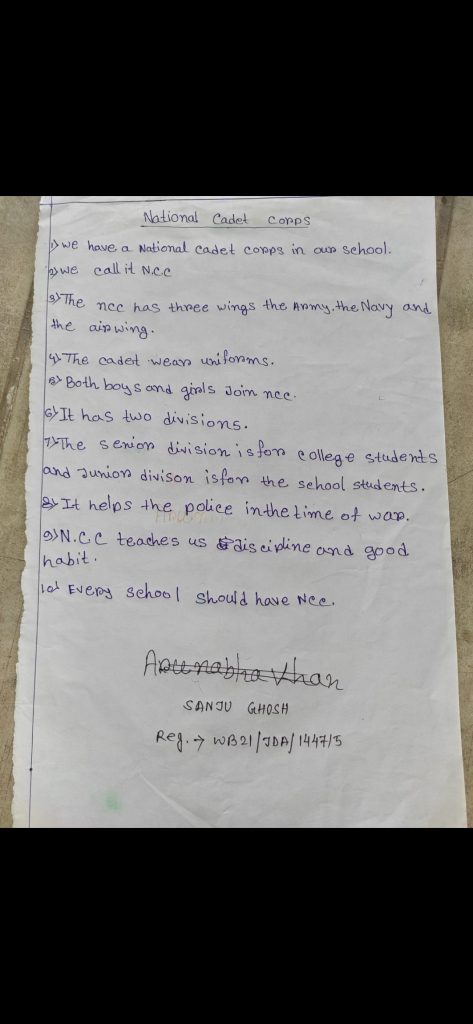 National Cadet Corps
1) We have a National cadet corps in our school.
2) We call it N.C.C
3) The ncc has three wings the Army, the Navy and
the airwing.
4) The cadet wear uniforms.
5) Both boys and girls Join ncc.
6) It has two divisions.
7) The senior division is for college students
and Junior divison is for the school students.
8) It helps the police in the time of war.
9) N.C.C teaches us discipline and good
habit.
10) Every school should have Ncc.
SANJU GHOSH
Reg. → WB21/JDA/144715